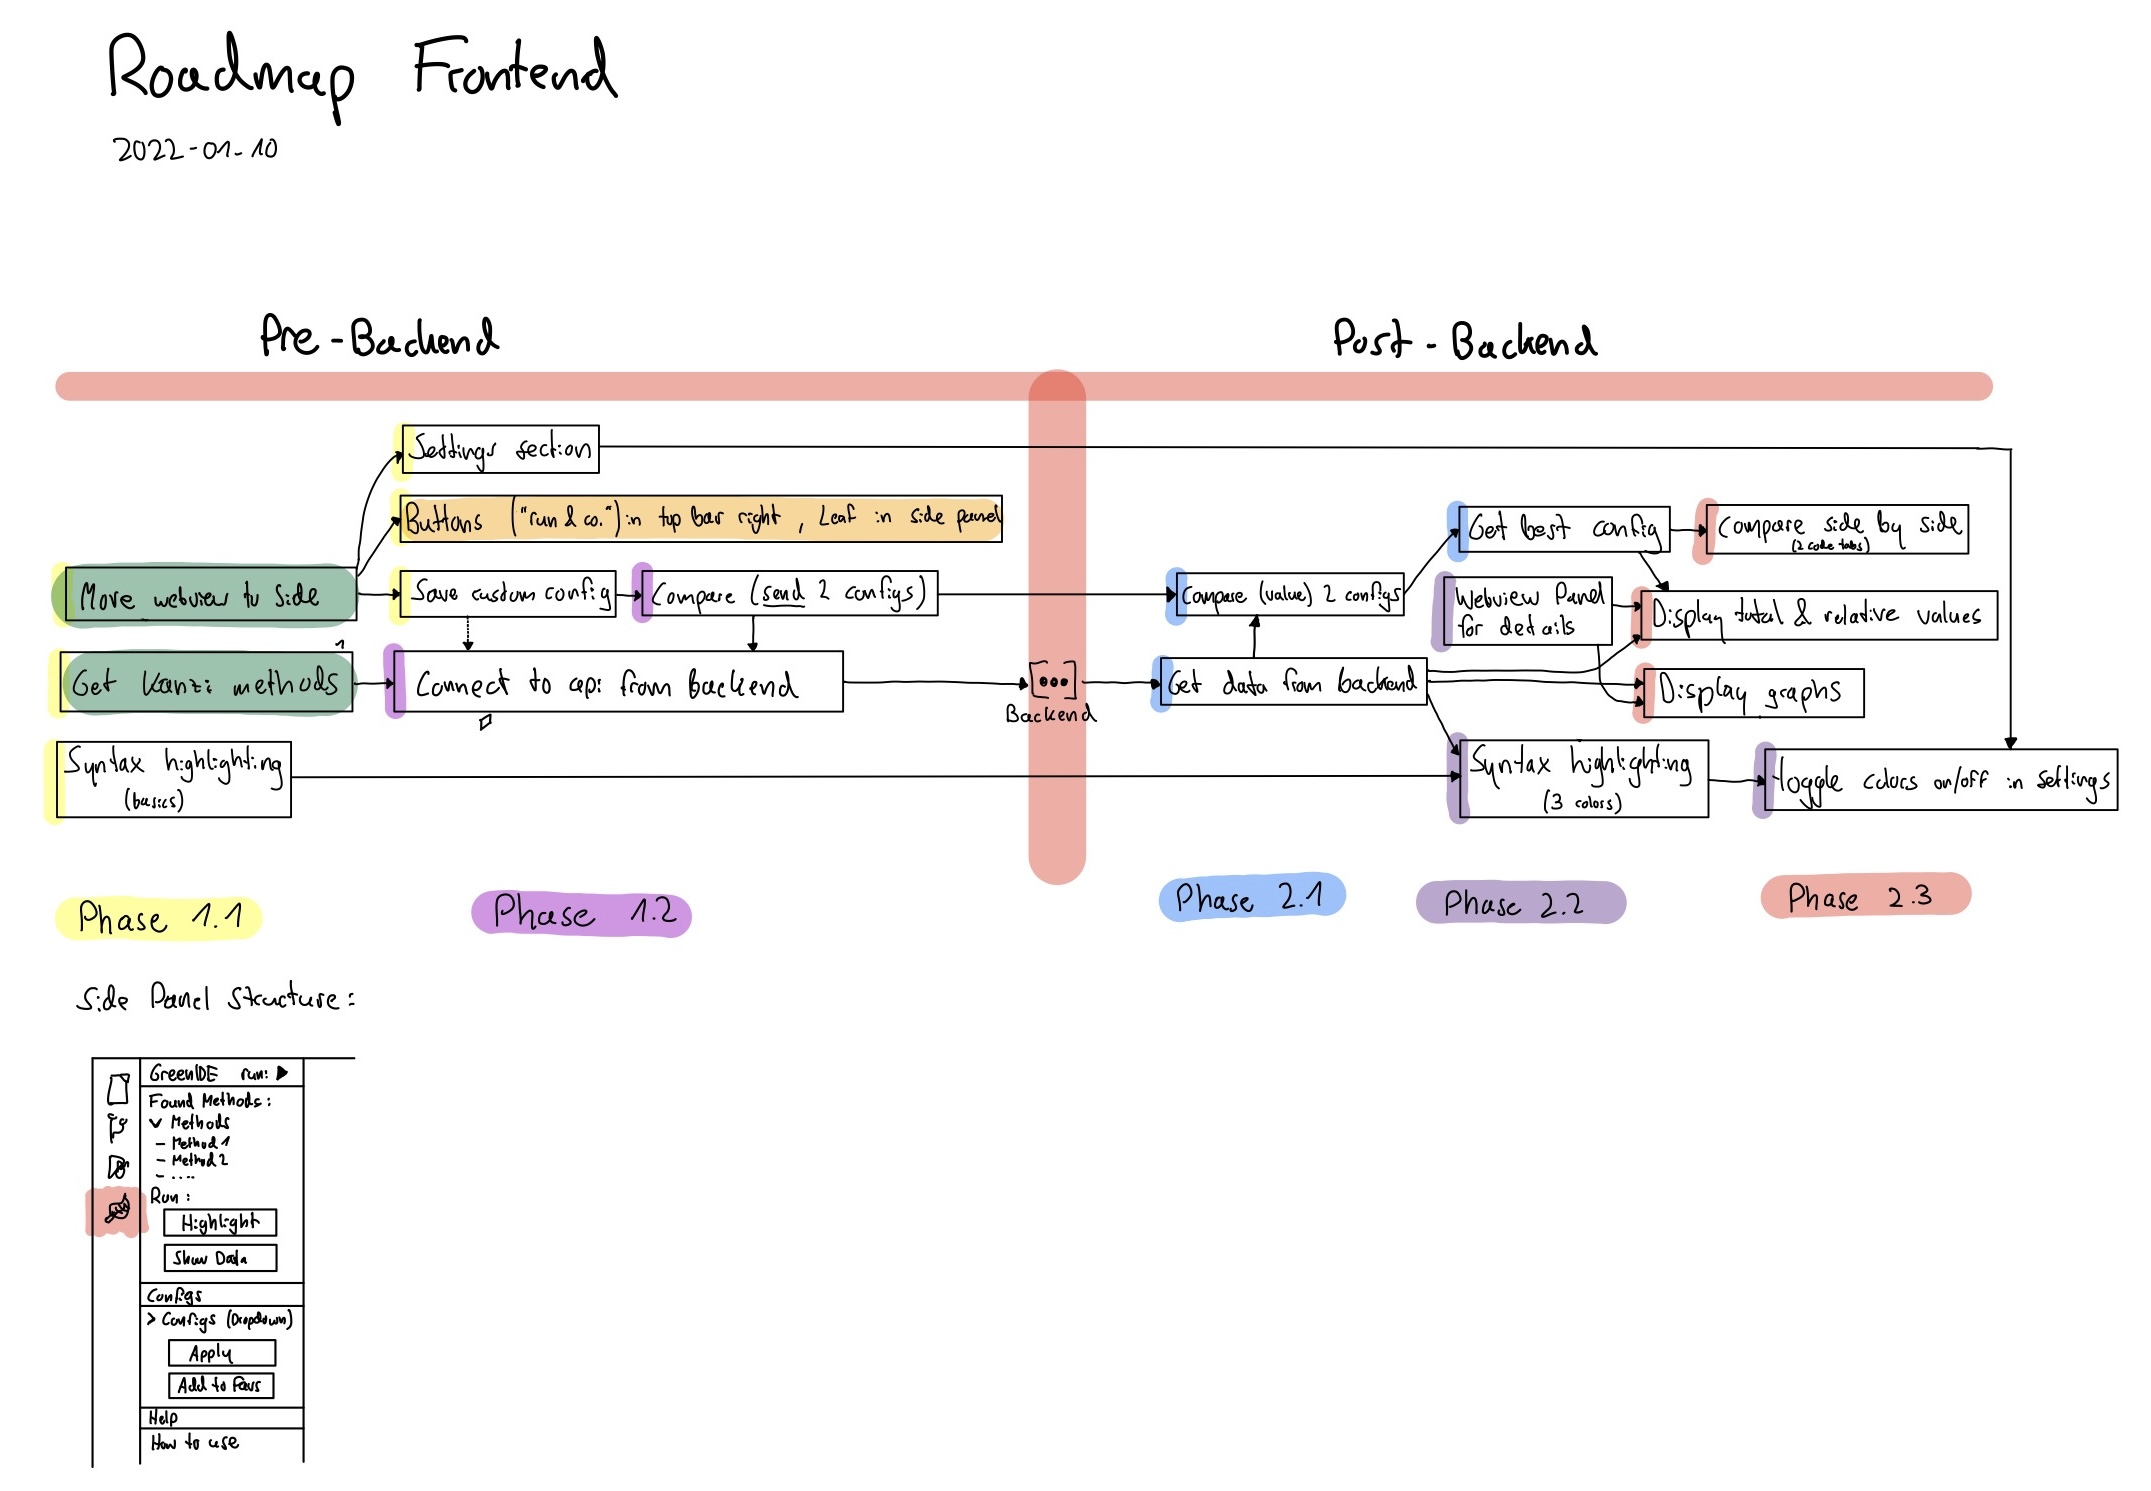 Roadmap Frontend
2022-01-10
Pre-Backend
Post-Backend
Settings section
Buttons ("run & co.") in top bar right, Leaf in side panel
Move webview to side
Save custom config
Compare (send 2 configs)
Get Kanzi methods
1
Connect to api from backend
Syntax highlighting
(basics)
Backend
Compare (value) 2 configs
Get data from backend
Get best config
Compare side by side
(2 code tabs)
Webview Panel
for details
Display total & relative values
Display graphs
Syntax highlighting
(3 colors)
toggle colors on/off in settings
Phase 1.1
Phase 1.2
Phase 2.1
Phase 2.2
Phase 2.3
Side Panel Structure:
GreenIDE run:
Found Methods:
v Methods
- Method 1
- Method 2
- ....
Run:
Highlight
Show Data
Configs
> Configs (Dropdown)
Apply
Add to Favs
Help
How to use